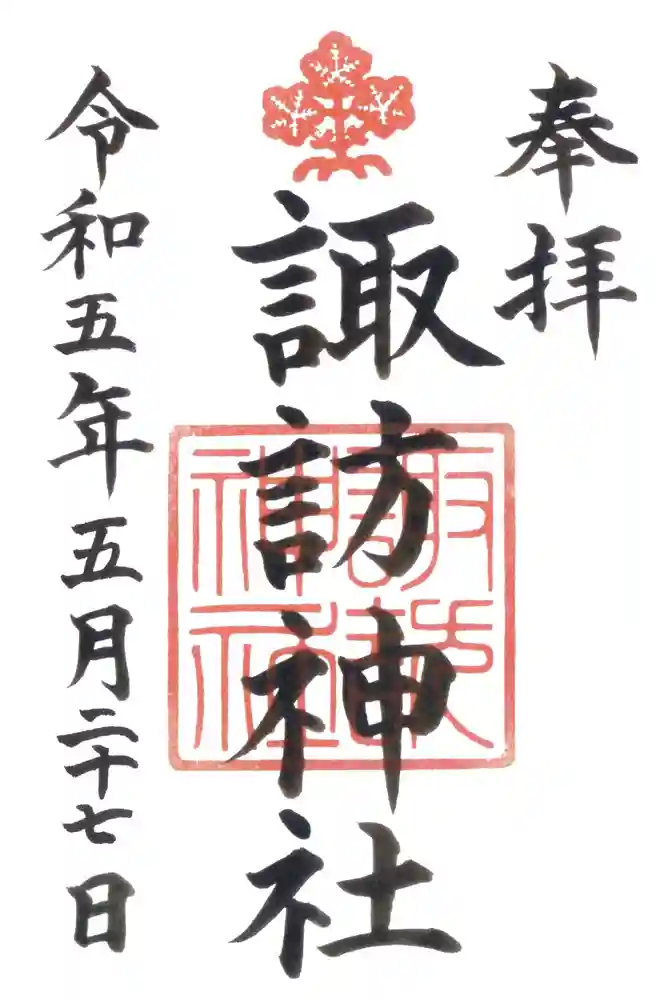 奉拝
諏訪神社
令和五年五月二十七日